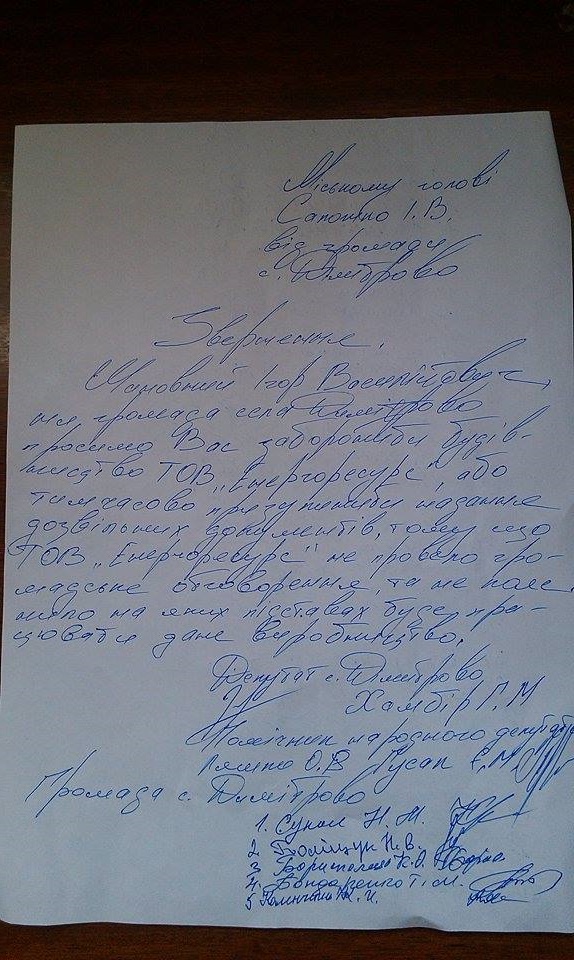 Міському голові
Сапожко І.В.
від громади
с. Димитрово
Звернення.
Шановний Ігор Васильйович,
ми громада села Димитрово
просимо Вас заборонити будів-
ництво ТОВ „Енергоресурс", або
тимчасово призупинити надання
дозвільних документів, тому що
ТОВ „Енергоресурс" не провело гро-
мадське обговорення, та не пояс
нило на яких підставах буде пра-
цювати дане виробництво.
Депутат с. Димитрово
Хамбір Г.М
Помічник народного депутата
Ляшко О.В Гусак Є.М
Громада с. Димитрово
1. Н. М.
2 Поліщук Н.В.
3 К.О.
4. Бондаренко Т.М.
5